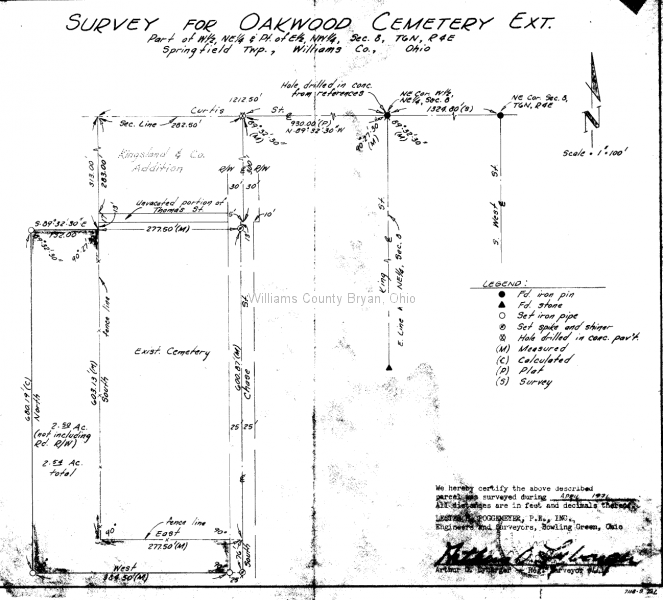 SURVEY FOR OAKWOOD CEMETERY EXT.
Part of W½, NE¼ & Pt. of E½, NW¼, Sec. 8, T6N, R4E
Springfield Twp., Williams Co., Ohio
Hole drilled in conc.
from references
NE Cor. W½,
NE¼, Sec. 8
NE Cor. Sec. 8,
T6N, R4E
1212.50'
Curtis St.
Sec. Line 282.50'
930.00'(P)
N-89°32'30"W
1324.80'(S)
89°32'30"
(M)
90°27'30"
(M)
89°32'30"
(M)
N
Scale = 1"=100'
Kingsland & Co.
Addition
313.00'
283.00'
R/W
R/W
30' 30'
300'
Unvacated portion of
Thomas St.
5'
10'
17'
13'
S-89°32'30"E
132.00'
277.50'(M)
13'
St.
King St.
E. Line W½ NE¼, Sec. 8
S. West St.
Williams County Bryan, Ohio
fence line
Exist. Cemetery
600.87'(M)
Chase St.
603.13'(M)
South
680.19'(C)
North
2.50 Ac.
(not including
Rd. R/W)
2.54 Ac.
total
25' 25'
LEGEND:
Fd. iron pin
Fd. stone
Set iron pipe
Set spike and shiner
Hole drilled in conc. pav't.
(M) Measured
(C) Calculated
(P) Plat
(S) Survey
fence line
90°
East
90°
277.50'(M)
76'
South
West
384.50'(M)
25'
We hereby certify the above described
parcel was surveyed during April 1971
All distances are in feet and decimals thereof.
LESTER H. POGGEMEYER, P.E., INC.,
Engineers and Surveyors, Bowling Green, Ohio